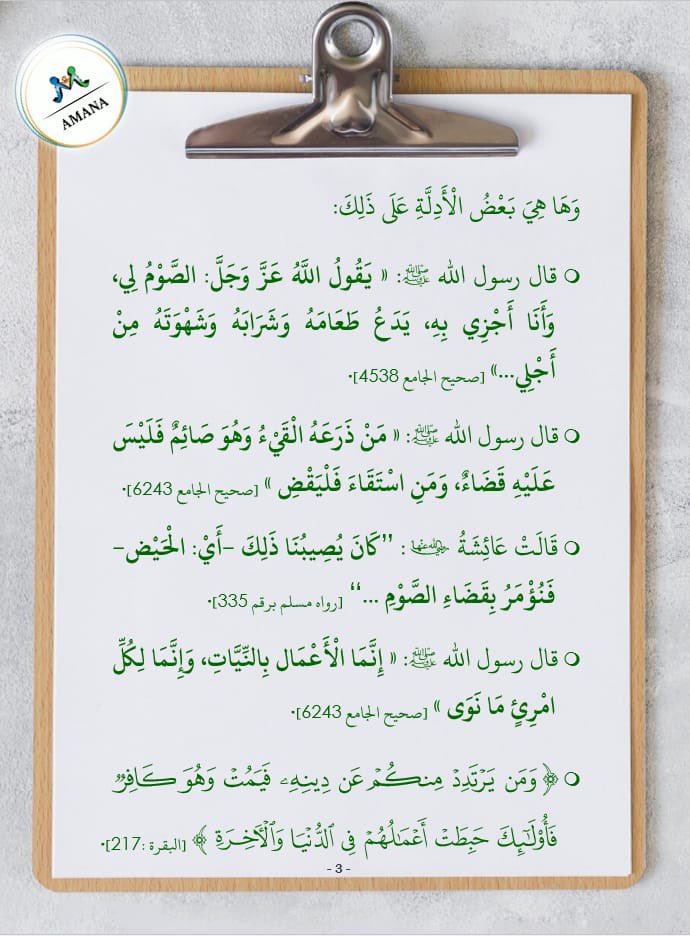 AMANA
وَهَا هِيَ بَعْضُ الْأَدِلَّةِ عَلَى ذَلِكَ:
○ قال رسول الله ﷺ: « يَقُولُ اللَّهُ عَزَّ وَجَلَّ: الصَّوْمُ لِي،
وَأَنَا أَجْزِي بِهِ، يَدَعُ طَعَامَهُ وَشَرَابَهُ وَشَهْوَتَهُ مِنْ
أَجْلِي...» [صحيح الجامع 4538].
○ قال رسول الله ﷺ: « مَنْ ذَرَعَهُ الْقَيْءُ وَهُوَ صَائِمٌ فَلَيْسَ
عَلَيْهِ قَضَاءٌ، وَمَنِ اسْتَقَاءَ فَلْيَقْضِ » [صحيح الجامع 6243].
○ قَالَتْ عَائِشَةُ رضي الله عنها : ’’كَانَ يُصِيبُنَا ذَلِكَ –أَيْ: الْحَيْض–
فَنُؤْمَرُ بِقَضَاءِ الصَّوْمِ ...‘‘ [رواه مسلم برقم 335].
○ قال رسول الله ﷺ: « إِنَّمَا الْأَعْمَال بِالنِّيَّاتِ، وَإِنَّمَا لِكُلِّ
امْرِئٍ مَا نَوَى » [صحيح الجامع 6243].
○ ﴿ وَمَن يَرْتَدِدْ مِنكُمْ عَن دِينِهِۦ فَيَمُتْ وَهُوَ كَافِرٌ
فَأُوْلَٰٓئِكَ حَبِطَتْ أَعْمَٰلُهُمْ فِي ٱلدُّنْيَا وَٱلْأٓخِرَةِ ﴾ [البقرة :217].
- 3 -